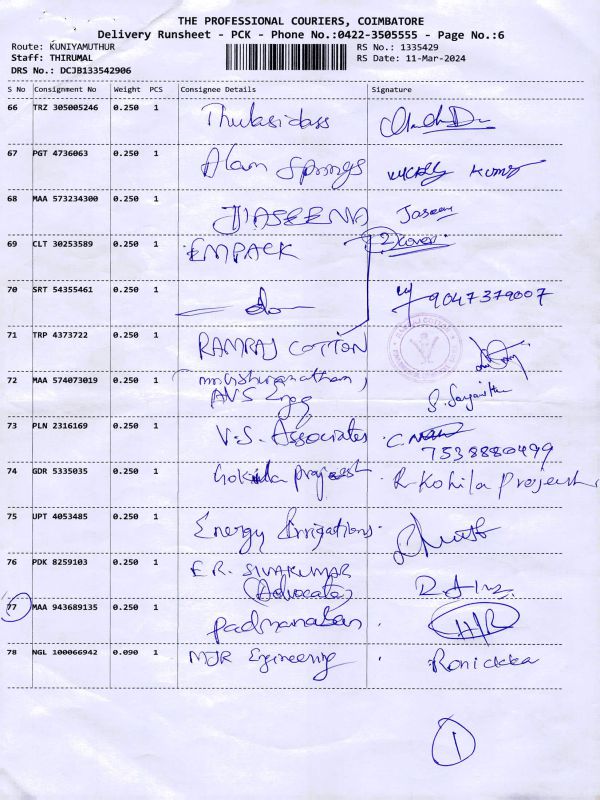 THE PROFESSIONAL COURIERS, COIMBATORE
Delivery Runsheet - PCK - Phone No.:0422-3505555 - Page No.:6
Route: KUNIYAMUTHUR RS No.: 1335429
Staff: THIRUMAL RS Date: 11-Mar-2024
DRS No.: DCJB133542906
S No Consignment No Weight PCS Consignee Details Signature
66 TRZ 305005246 0.250 1 Thulasidass
67 PGT 4736063 0.250 1 Alam Springs
68 MAA 573234300 0.250 1 JASEENA Jaseen
69 CLT 30253589 0.250 1 EMPACK 2 Cover
70 SRT 54355461 0.250 1 9047379007
71 TRP 4373722 0.250 1 RAMRAJ COTTON
72 MAA 574073019 0.250 1
AVS Engg
73 PLN 2316169 0.250 1 V.S. Associates
7538880499
74 GDR 5335035 0.250 1 Kokila Projesh R Kohila Projeesh
75 UPT 4053485 0.250 1 Energy Irrigations.
76 PDK 8259103 0.250 1 E.R. SIVAKUMAR
(Advocate)
77 MAA 943689135 0.250 1 Padmanaban
78 NGL 100066942 0.090 1 MJR Engineering Ronickka
1